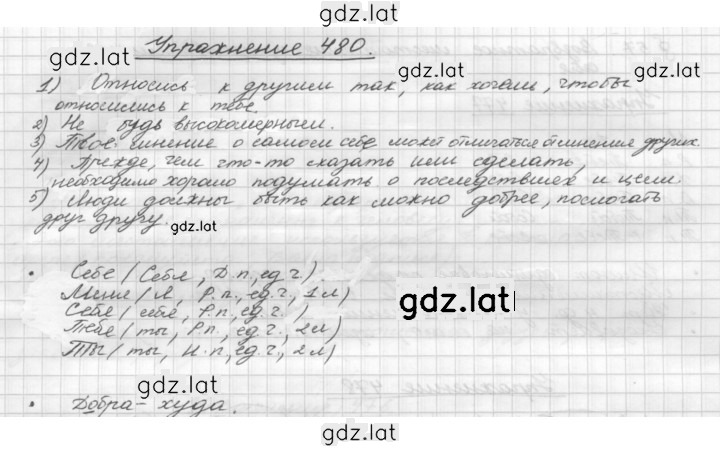 gdz.lat
Упражнение 480.
gdz.lat gdz.lat
1) Относись к другим так, как хочешь, чтобы
относились к тебе.
2) Не будь высокомерным.
3) Твоё мнение о самом себе может отличаться от мнения других.
4) Прежде, чем что-то сказать или сделать,
необходимо хорошо подумать о последствиях и цели.
5) Люди должны быть как можно добрее, помогать
друг другу.
gdz.lat
• Себе (Себя, Д.п., ед.ч.).
Меня (Я, Р.п., ед.ч., 1 л)
Себя (себя, Р.п., ед.ч.)
gdz.lat
Тебе (ты, Р.п., ед.ч., 2 л)
Ты (ты, И.п., ед.ч., 2 л)
gdz.lat
• Добра - худа.
gdz.lat
gdz.lat